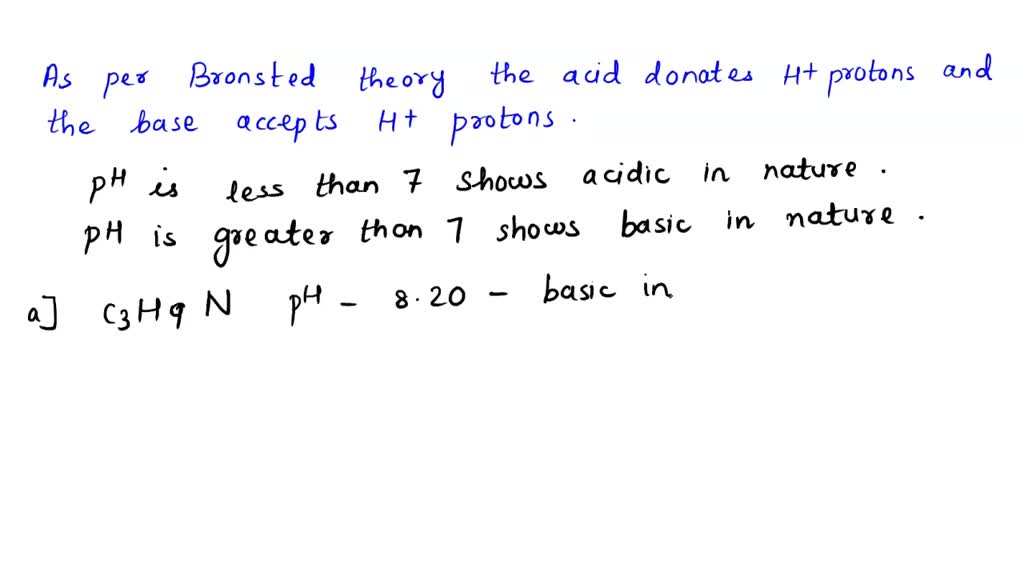 As per Bronsted theory the acid donates H+ protons and
the base accepts H+ protons.
pH is less than 7 shows acidic in nature.
pH is greater than 7 shows basic in nature.
a] C3H9N pH - 8.20 - basic in